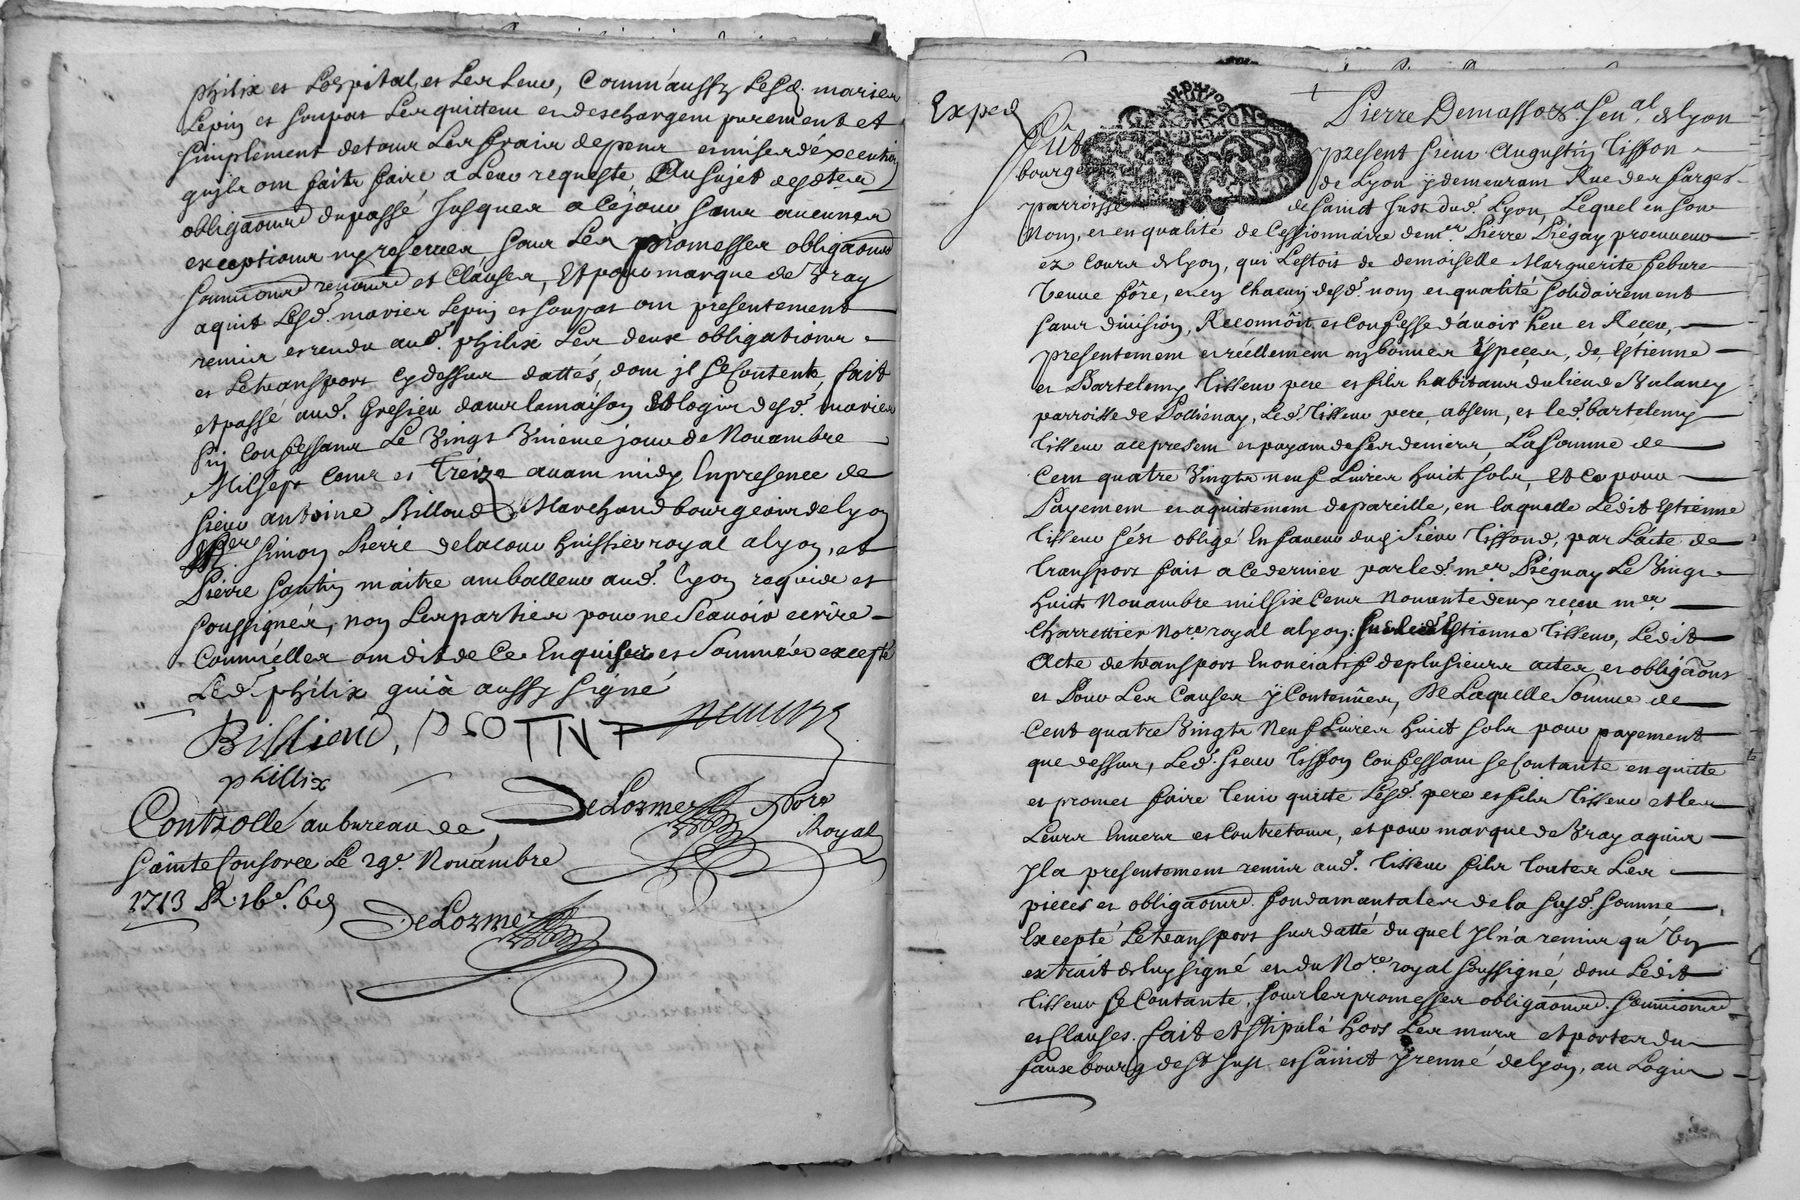 philix et Lospital, et Les Leur, Comm'aussy Lesd. maries
Lepin et soupat Les quittent en deschargent purement et
simplement de tous Les fraix depens et mises d'éxecution
qu'jls ont faits faire a Leur requeste Au sujet desdtes
obligaôns du passé Jusques a Cejour, sans aucunes
exceptions ny reserves sous Les promesses obligaôns
soumissions renons et Clauses, Et pour marque de Vray
aquit Lesd. maries Lepin et soupat ont presentement
remis et rendu aud. philix Les deux obligations
et Letransport cy dessus dattés, dont jl se Contente, fait
et passé aud. Gresieu dans lamaison et logis desd. maries
Confessans Le Vingt Vnieme jour de Nouambre
Milsept Cens et Treize auant midy Enpresence de
sieur antoine Billoud Marchand bourgeois de Lyon
simon Pierre delacour huissier royal a Lyon, et
Pierre santin maitre amballeur aud. Lyon requis et
soussignés, non Les parties pour ne Scauoir ecrire
Comm'elles ont dit de Ce Enquises et Sommées excepté
Led. philix qui à aussy signé
Billioud, PSOTINT
phillix
DeLorme Nore
Royal
Controllé au bureau de
Sainte Consorce Le 29e Nouambre
1713 R. 16s. 6d
DeLorme
Exped
Pierre Demasso &a Senal de Lyon
Fût present sieur Augustin Tisson
bourgeois de Lyon ÿ demeurant Rue des farges
parroisse de sainct Just dud. Lyon, Lequel en son
Nom, et en qualité de Cessionnaire de mer Pierre Piégay procureur
ez Cours de Lyon, qui L'estoit de demoiselle Marguerite febure
Veuue fôre, et en Chacun desd. nom et qualité solidairement
sans diuision, Reconnôit et Confesse d'auoir heu et Receu,
presentement et réellement en bonnes Espeçes, de Estienne
et Bartelemy Tisseur pere et fils habitans du lieu de Valancy
parroisse de Pollienay, Led. Tisseur pere, absent, et led. bartelemy
Tisseur ace present et payant de ses deniers La Somme de
Cent quatre Vingts neuf Liures huict sols, Et Ce pour
Payement et aquitement de pareille, en laquelle Ledit Estienne
Tisseur s'ést obligé En faueur dud. Sieur Tissond, par L'acte de
transport fait a Ce dernier par led. mer Piégnay Le Vingt
huict Nouambre mil six Cens Nonante deux reçeu mer
Charrettier Nore royal a Lyon: Estienne Tisseur, Ledit
Acte de transport Enonciatif de plusieurs actes et obligaôns
et Pour Les Causes ÿ Contenües, De Laquelle Somme de
Cent quatre Vingts Neuf Liures huict sols pour payement
que dessus, Led. sieur Tisson Confessant se Contante en quitte
et promet faire Tenir quitte Lesd. pere et fils Tisseur et les
Leurs Enuers et Contre tous, et pour marque de Vray aquit
Jl a presentement remis aud. Tisseur fils Toutes Les
pieçes et obligaôns fondamantales de la susd. somme
Excepté Letransport sus datté du quel Jl n'a remis qu'Vn
extrait de luy signé et du Nore royal soussigné, dont Ledit
Tisseur se Contante, sous les promesses obligaôns soumissions
et Clauses. fait et stipulé hors Les murs et portes du
faux bourg de St Just et sainct Jrenné de Lyon, au Logis